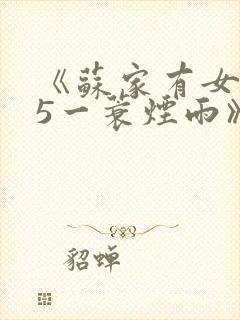 《蘇家有女
5一蓑煙雨》
貂蝉